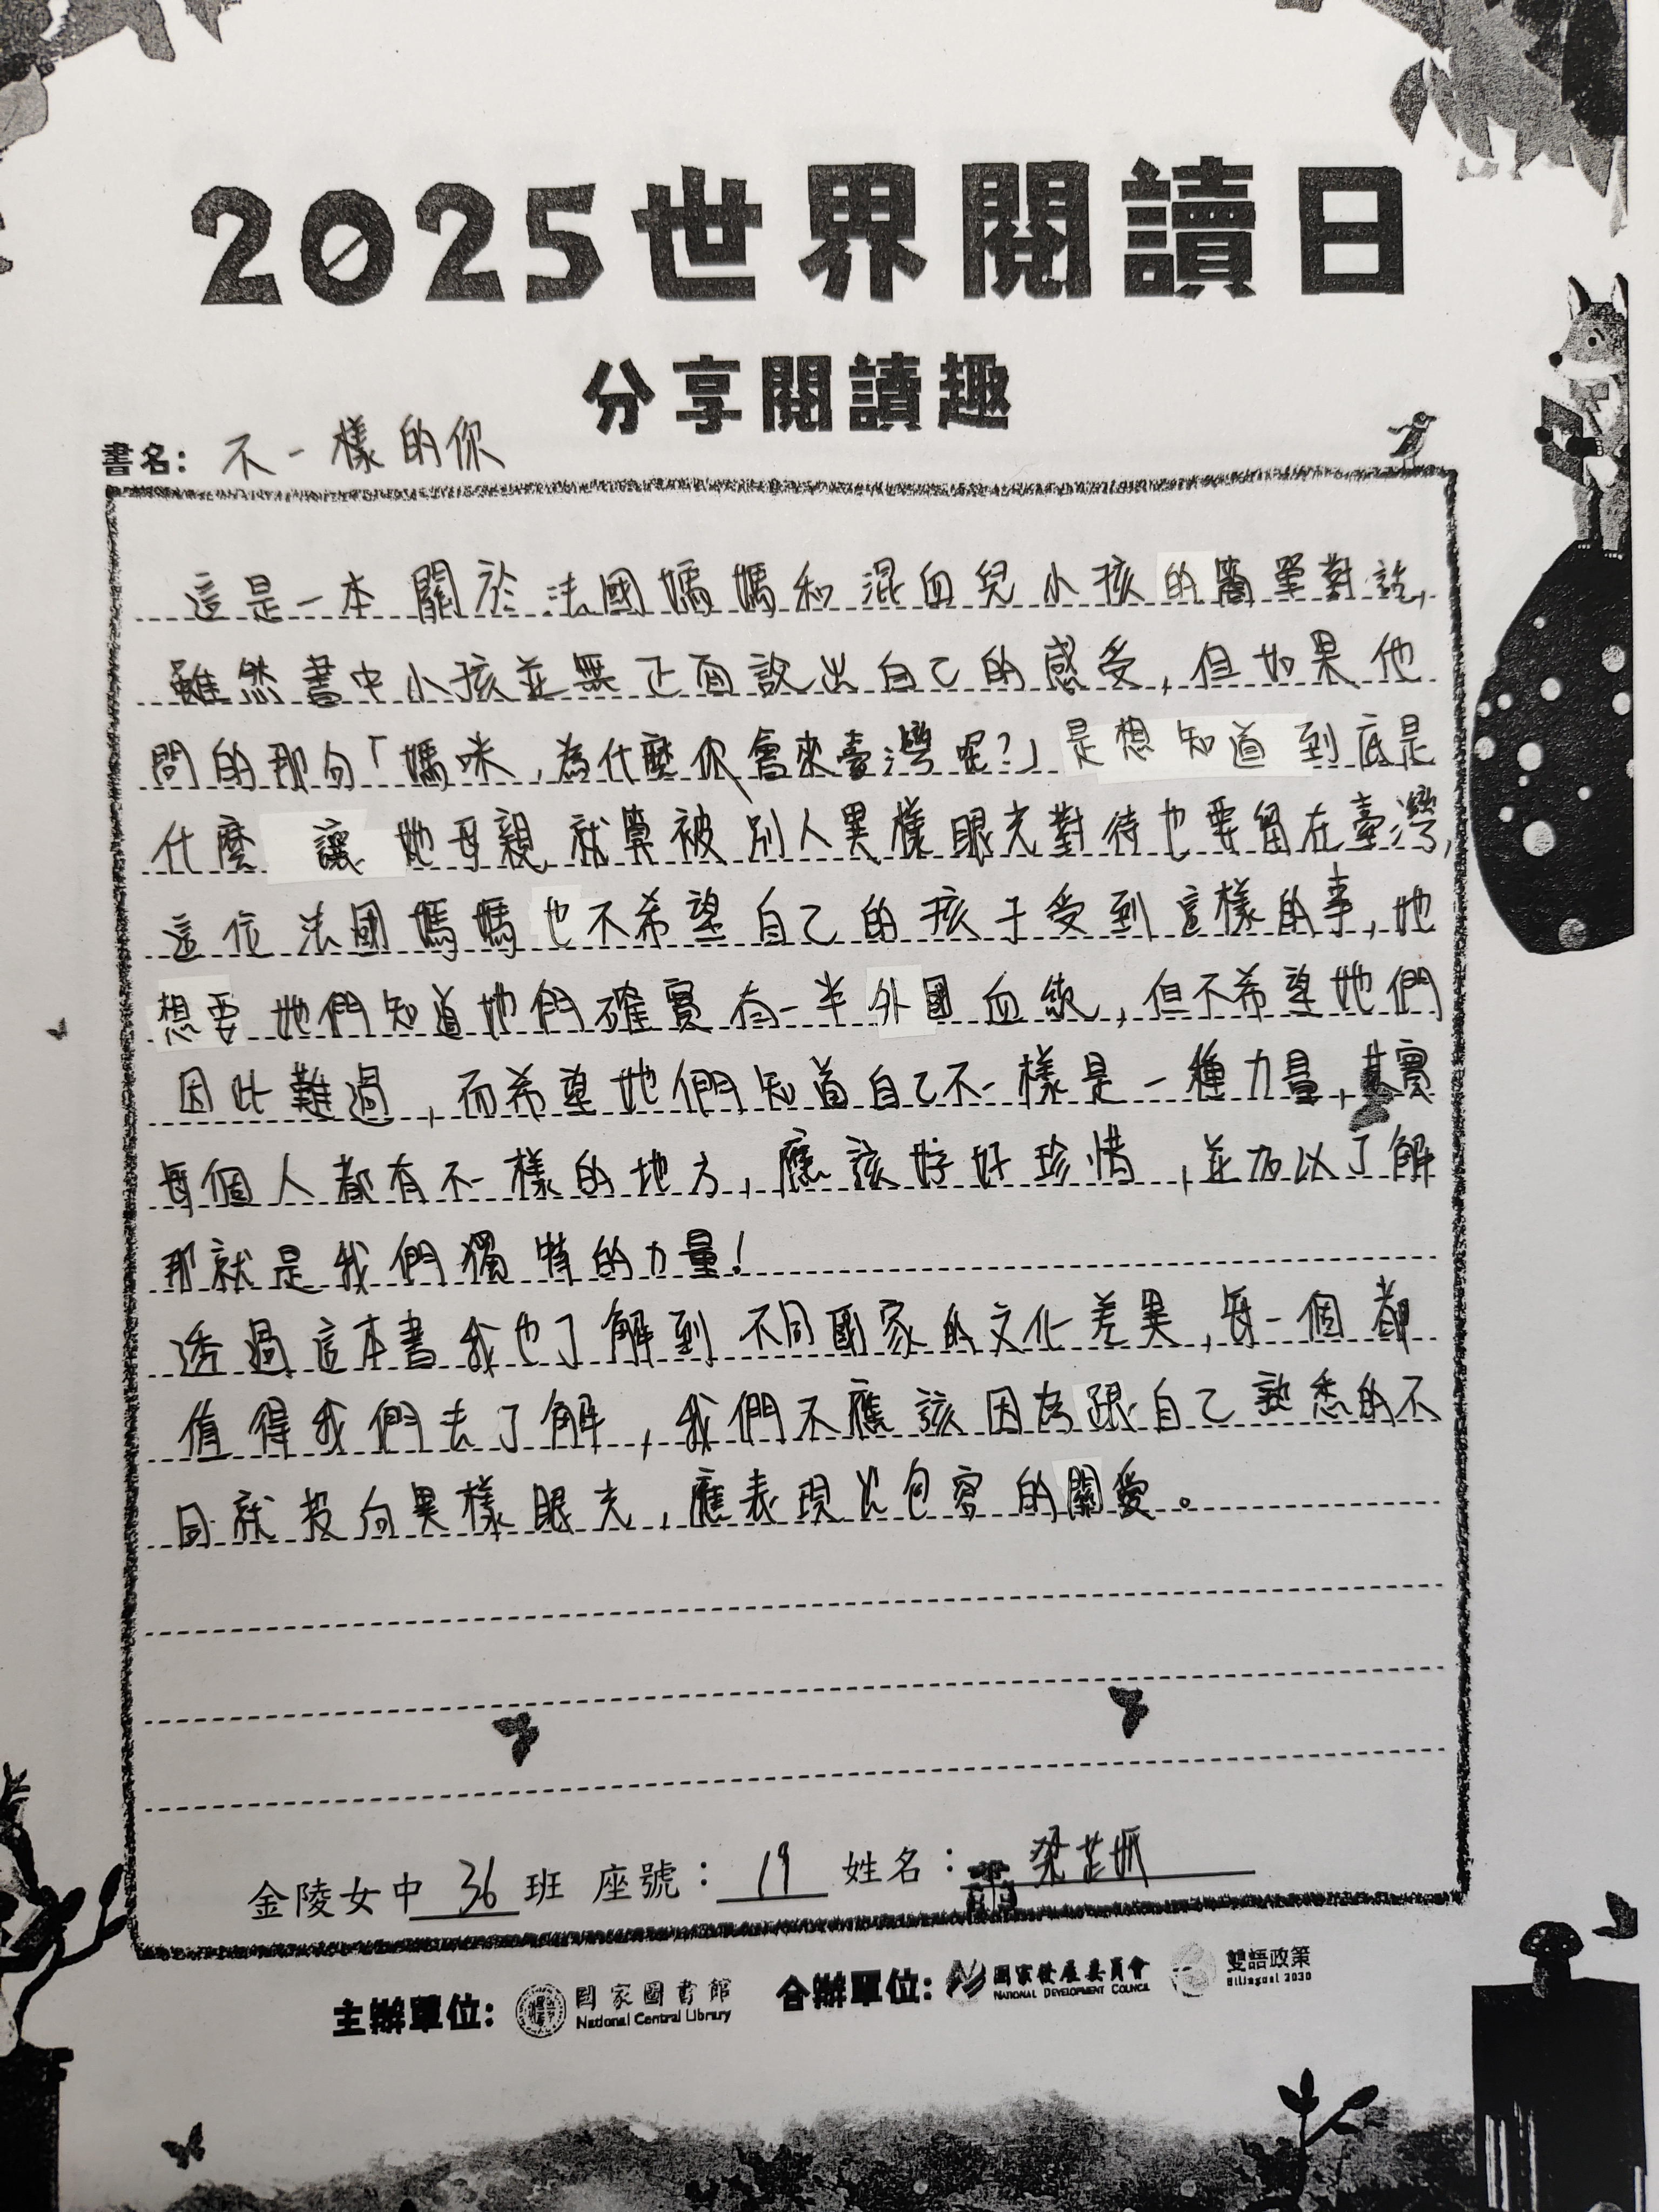 2025世界閱讀日
分享閱讀趣
書名：不一樣的你
這是一本關於法國媽媽和混血兒小孩的簡單對話，
雖然書中小孩並無正面說出自己的感受，但如果他
問的那句「媽咪，為什麼你會來臺灣呢？」是想知道到底是
什麼讓她母親就算被別人異樣眼光對待也要留在臺灣，
這位法國媽媽也不希望自己的孩子受到這樣的事，她
想要她們知道她們確實有一半外國血統，但不希望她們
因此難過，而希望她們知道自己不一樣是一種力量，其實
每個人都有不一樣的地方，應該好好珍惜，並加以了解
那就是我們獨特的力量！
透過這本書我也了解到不同國家的文化差異，每一個都
值得我們去了解，我們不應該因為跟自己熟悉的不
同就投向異樣眼光，應表現出包容的關愛。
金陵女中 36 班 座號：19 姓名：梁芷
主辦單位：國家圖書館 National Central Library 合辦單位：國家發展委員會 NATIONAL DEVELOPMENT COUNCIL 雙語政策 Bilingual 2030